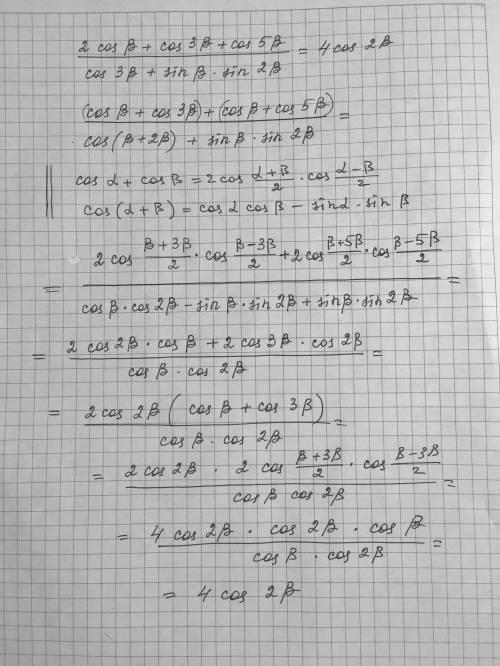 (2 cos β + cos 3β + cos 5β) / (cos 3β + sin β · sin 2β) = 4 cos 2β
((cos β + cos 3β) + (cos β + cos 5β)) / (cos(β + 2β) + sin β · sin 2β) =
cos α + cos β = 2 cos (α + β)/2 · cos (α − β)/2
cos(α + β) = cos α cos β − sin α · sin β
= (2 cos (β + 3β)/2 · cos (β − 3β)/2 + 2 cos (β + 5β)/2 · cos (β − 5β)/2) / (cos β · cos 2β − sin β · sin 2β + sin β · sin 2β) =
= (2 cos 2β · cos β + 2 cos 3β · cos 2β) / (cos β · cos 2β) =
= (2 cos 2β (cos β + cos 3β)) / (cos β · cos 2β) =
= (2 cos 2β · 2 cos (β + 3β)/2 · cos (β − 3β)/2) / (cos β cos 2β) =
= (4 cos 2β · cos 2β · cos β) / (cos β · cos 2β) =
= 4 cos 2β